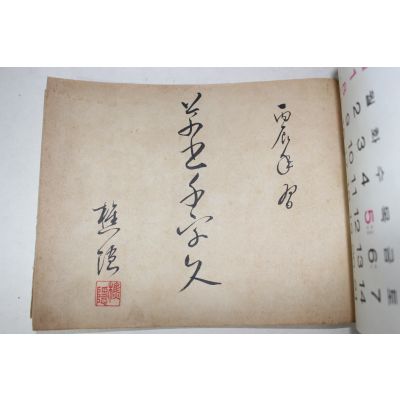 丙辰年習
草書千字文
樵隱
樵隱
월 화 수 목 금 토
2 3 4 5 6 7
9 10 11 12 13 14